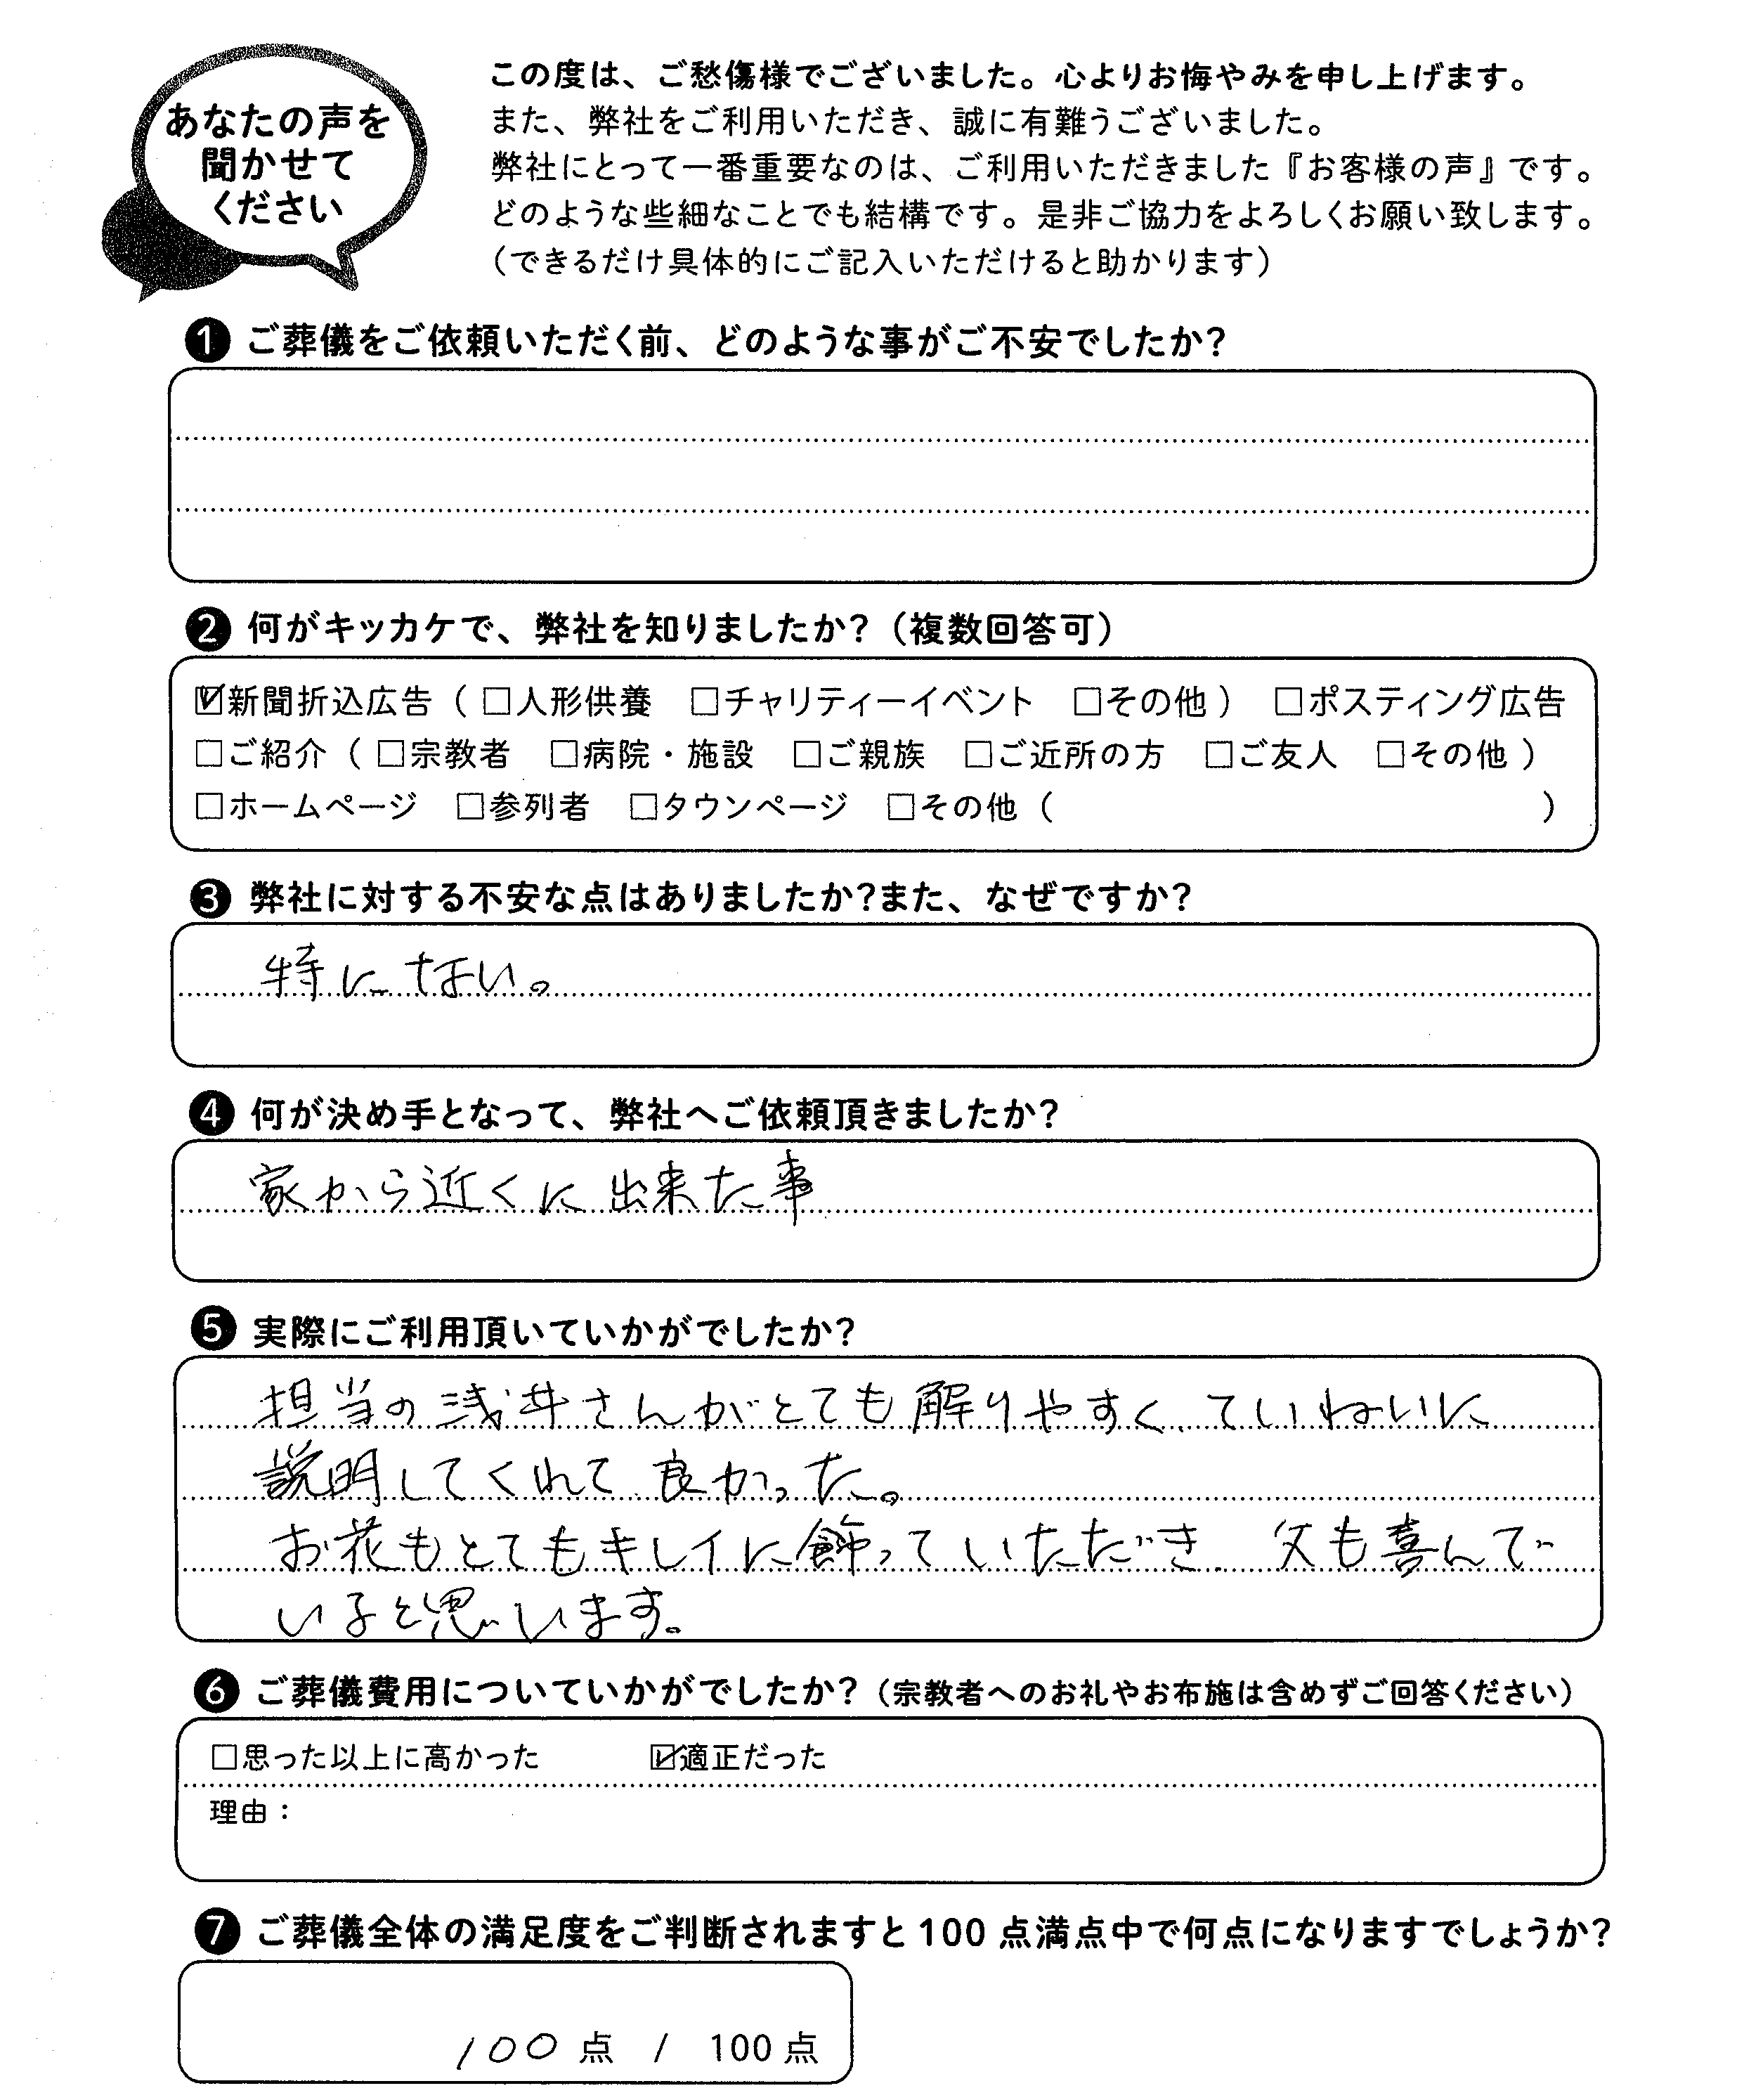 あなたの声を
聞かせて
ください
この度は、ご愁傷様でございました。心よりお悔やみを申し上げます。
また、弊社をご利用いただき、誠に有難うございました。
弊社にとって一番重要なのは、ご利用いただきました『お客様の声』です。
どのような些細なことでも結構です。是非ご協力をよろしくお願い致します。
（できるだけ具体的にご記入いただけると助かります）
❶ ご葬儀をご依頼いただく前、どのような事がご不安でしたか?
❷ 何がキッカケで、弊社を知りましたか?（複数回答可）
☑新聞折込広告（ □人形供養 □チャリティーイベント □その他 ） □ポスティング広告
□ご紹介（ □宗教者 □病院・施設 □ご親族 □ご近所の方 □ご友人 □その他 ）
□ホームページ □参列者 □タウンページ □その他（ ）
❸ 弊社に対する不安な点はありましたか?また、なぜですか?
特にない。
❹ 何が決め手となって、弊社へご依頼頂きましたか?
家から近くに出来た事
❺ 実際にご利用頂いていかがでしたか?
担当の浅井さんがとても解りやすく、ていねいに
説明してくれて良かった。
お花もとてもキレイに飾っていただき、父も喜んで
いると思います。
❻ ご葬儀費用についていかがでしたか?（宗教者へのお礼やお布施は含めずご回答ください）
□思った以上に高かった ☑適正だった
理由：
❼ ご葬儀全体の満足度をご判断されますと100 点満点中で何点になりますでしょうか?
100 点 / 100 点